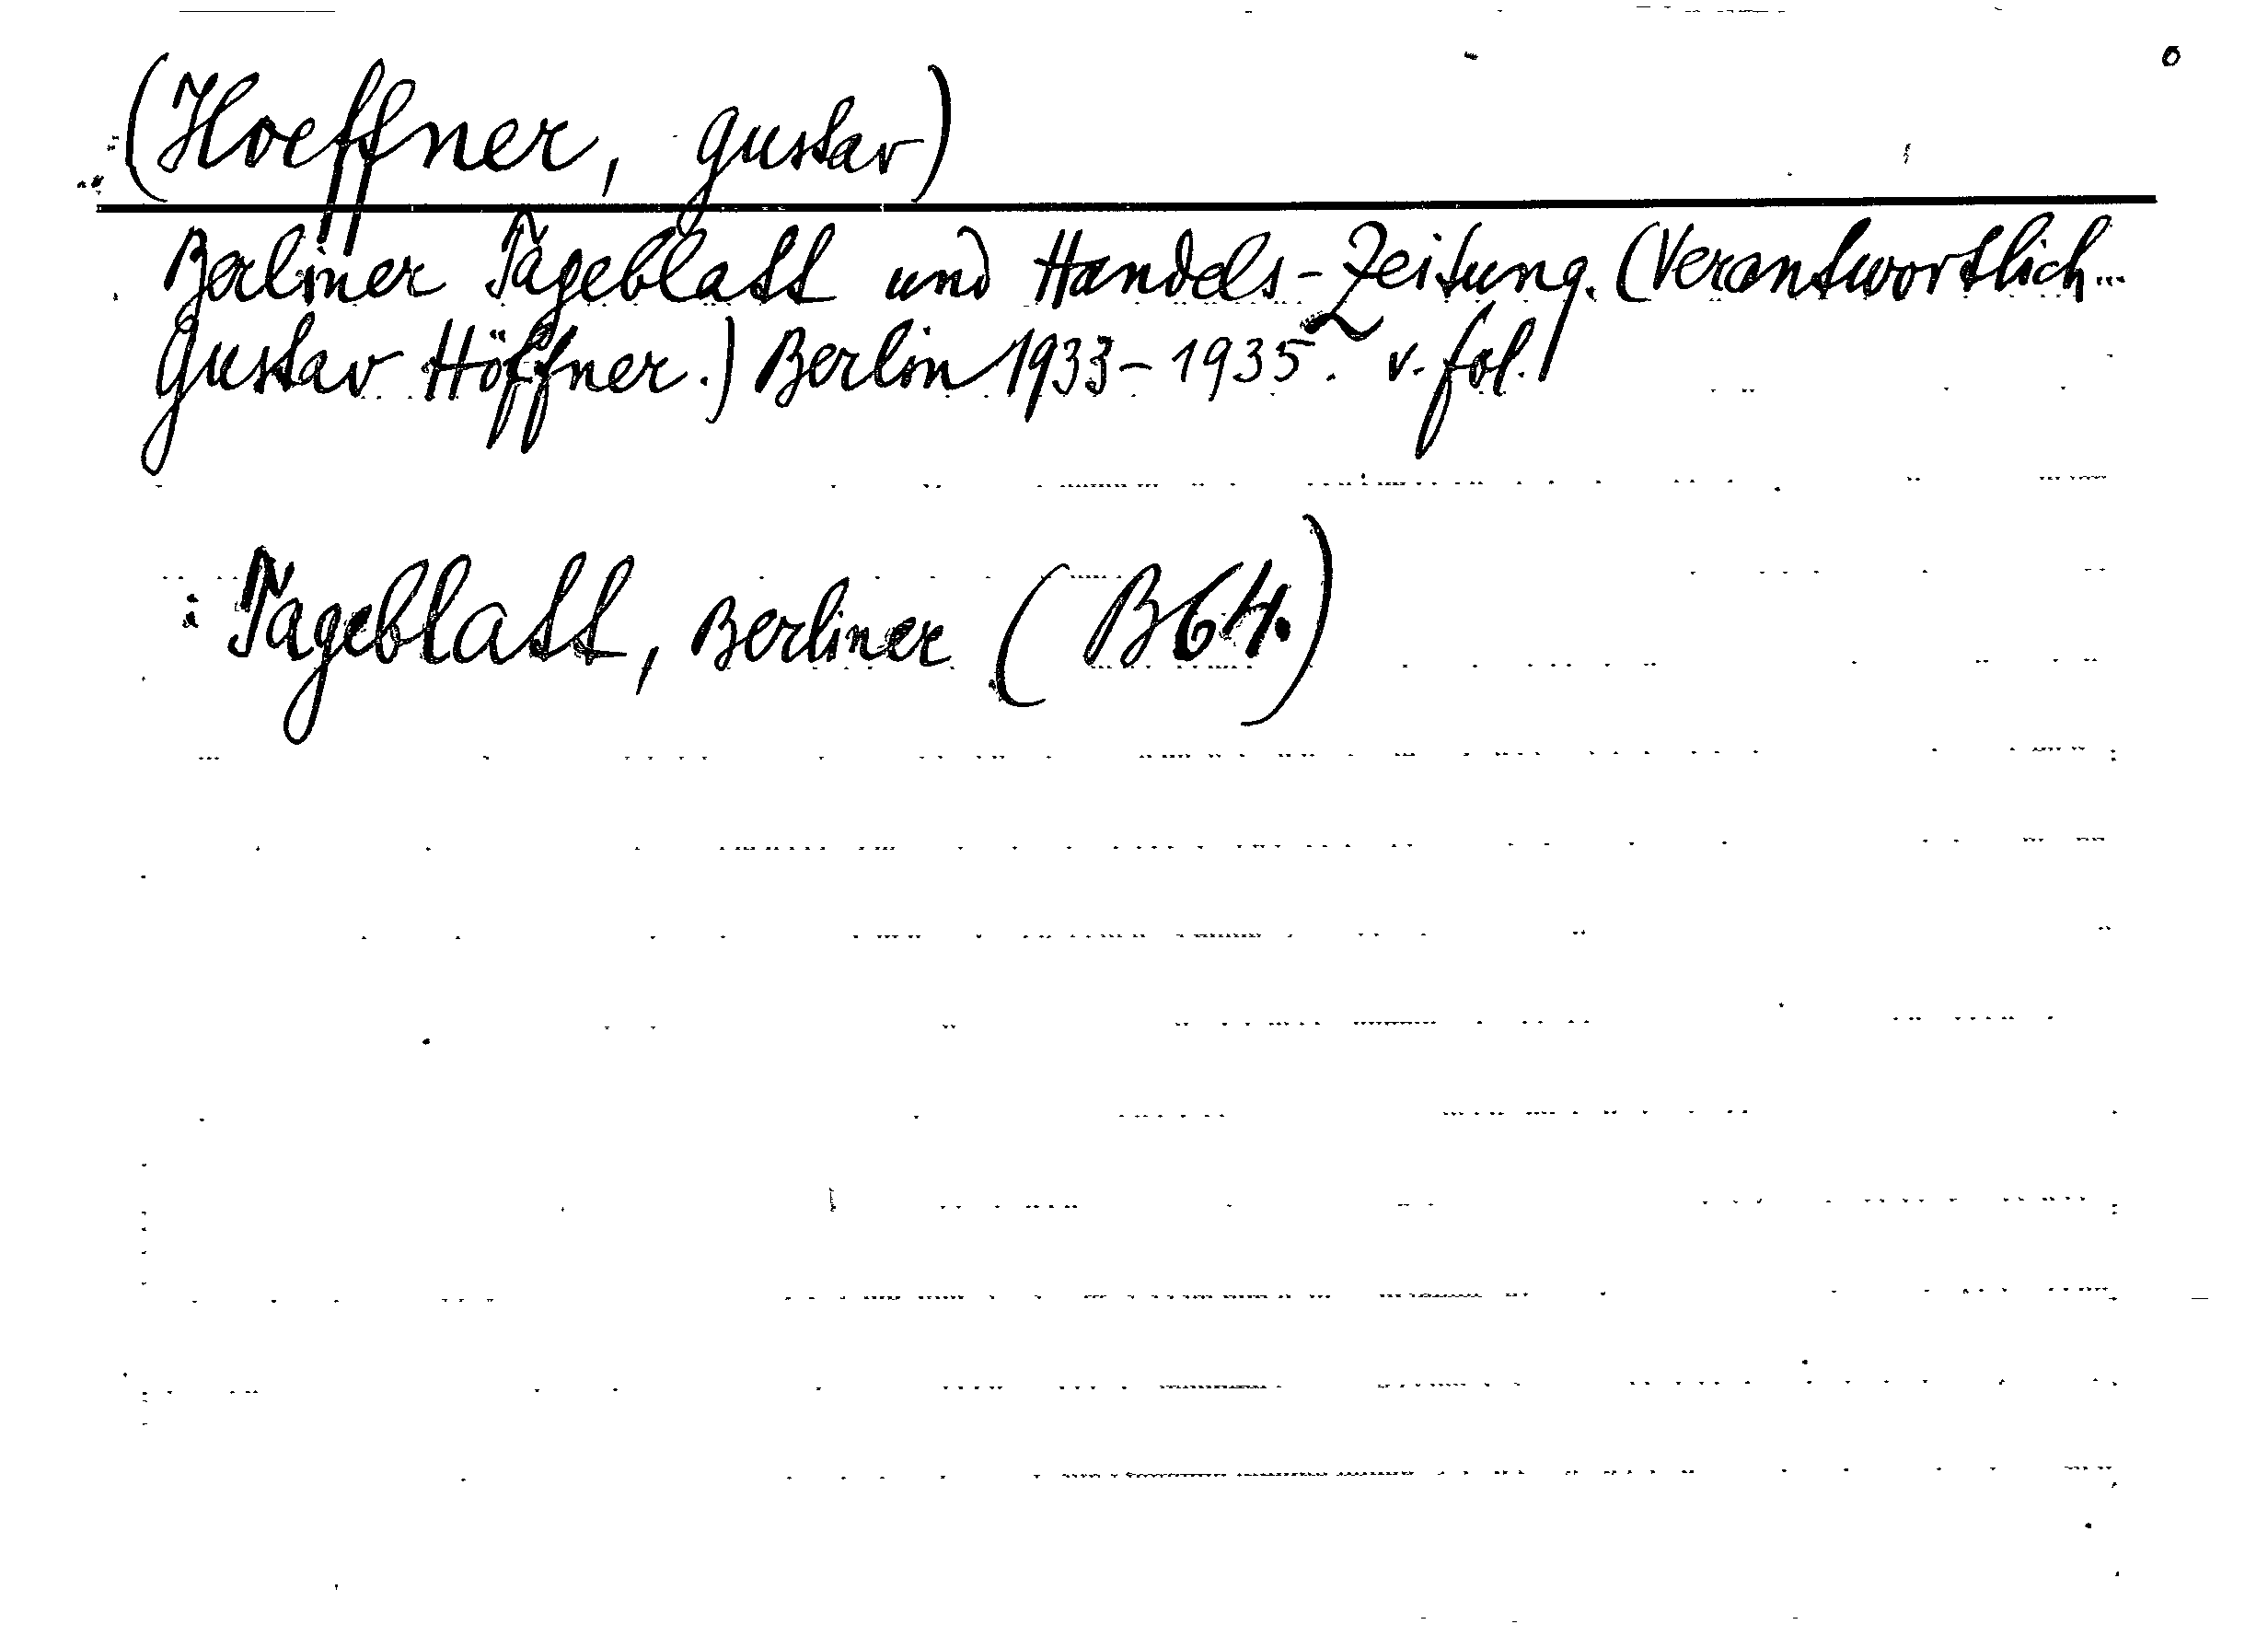 (Hoeffner, Gustav)
Berliner Tageblatt und Handels-Zeitung. (Verantwortlich...
Gustav Höffner.) Berlin 1933-1935. v. fol.
: Tageblatt, Berliner (B64.)